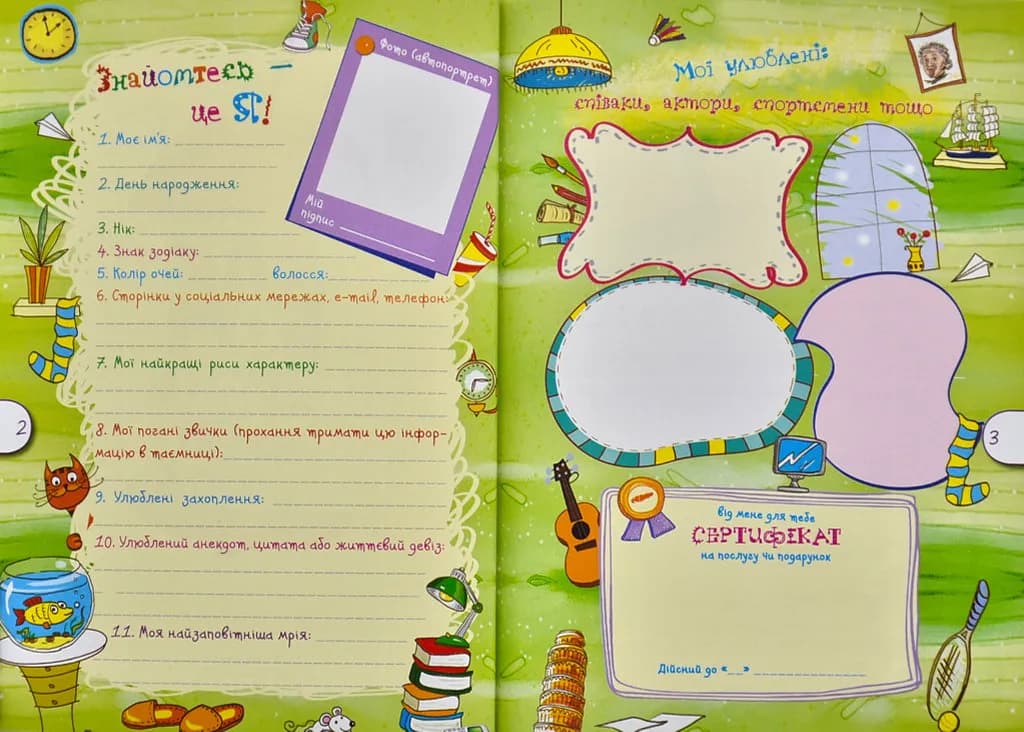 Знайомтесь –
це Я!
Фото (автопортрет)
Мій
підпис
1. Моє ім'я:
2. День народження:
3. Нік:
4. Знак зодіаку:
5. Колір очей: волосся:
6. Сторінки у соціальних мережах, e-mail, телефон:
7. Мої найкращі риси характеру:
8. Мої погані звички (прохання тримати цю інфор-
мацію в таємниці):
9. Улюблені захоплення:
10. Улюблений анекдот, цитата або життєвий девіз:
11. Моя найзаповітніша мрія:
2
Мої улюблені:
співаки, актори, спортсмени тощо
3
від мене для тебе
СЕРТИФІКАТ
на послугу чи подарунок
Дійсний до «__»